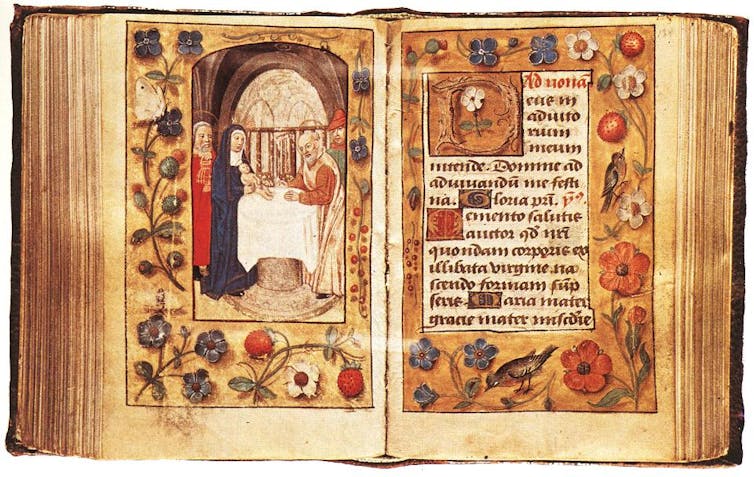 Ad nonā
Deus in
adiuto
rium
meum
intende. Domine ad
adiuvandum me festi
na. Gloria pri. ys
Memento salutis
auctor qd nri
quondam corporis ex
illibata virgine na
scendo formam sūp
seris. Maria mater
gracie mater miscdie